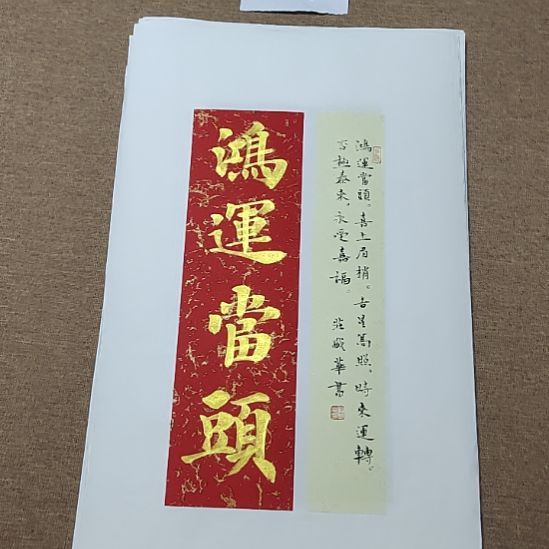 鴻運當頭
鴻運當頭。喜上眉梢。吉星高照。時來運轉。
否極泰來，永受嘉福。 莊嚴華書